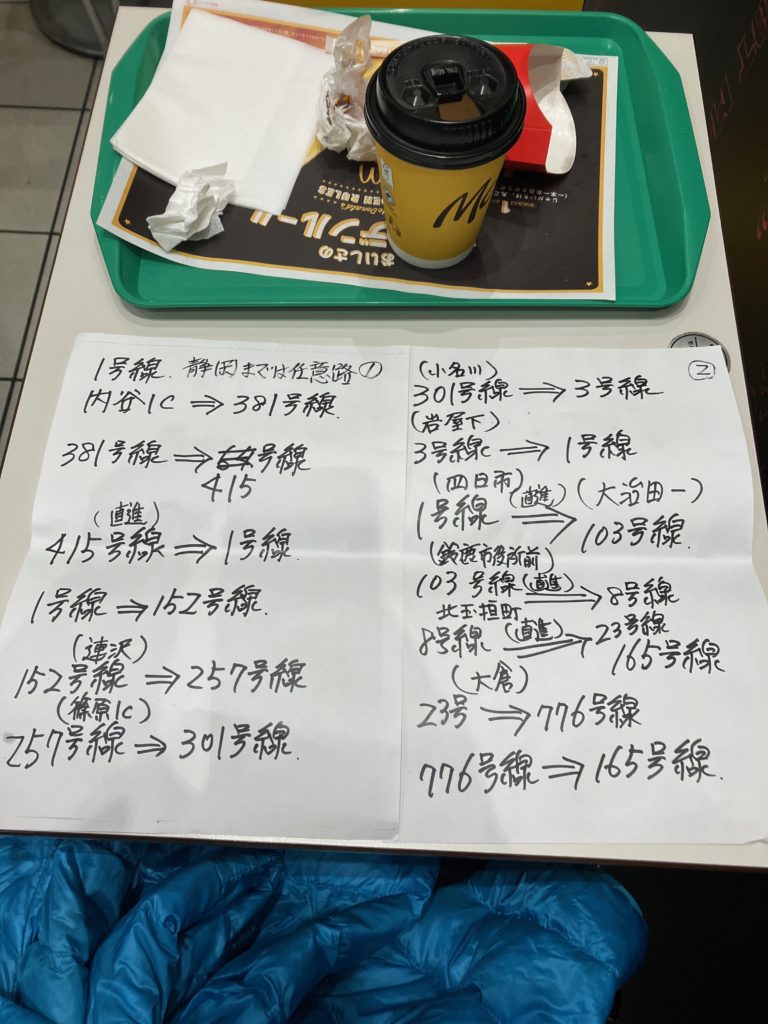 Mc
おいしさの
McDonald's
1号線. 静岡までは任意路 ①
内谷IC ⇒ 381号線.
381号線 ⇒ 号線
415
(直進)
415号線 ⇒ 1号線.
1号線 ⇒ 152号線.
(連沢)
152号線 ⇒ 257号線
(篠原IC)
257号線 ⇒ 301号線.
②
(小名川)
301号線 ⇒ 3号線
(岩屋下)
3号線 ⇒ 1号線
(四日市) (大治田一)
1号線 (直進) ⇒ 103号線.
(鈴鹿市役所前)
103号線 (直進) ⇒ 8号線
北玉垣町
8号線 (直進) ⇒ 23号線
165号線
(大倉)
23号 ⇒ 776号線
776号線 ⇒ 165号線.